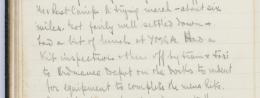 Rest Camp. A trying march - about six
miles. Got fairly well settled down &
had a bit of lunch at YMCA. Had a
Kit inspection & then off by tram & taxi
to Ordnance Depot on the Docks to indent
for equipment to complete the mens kits.